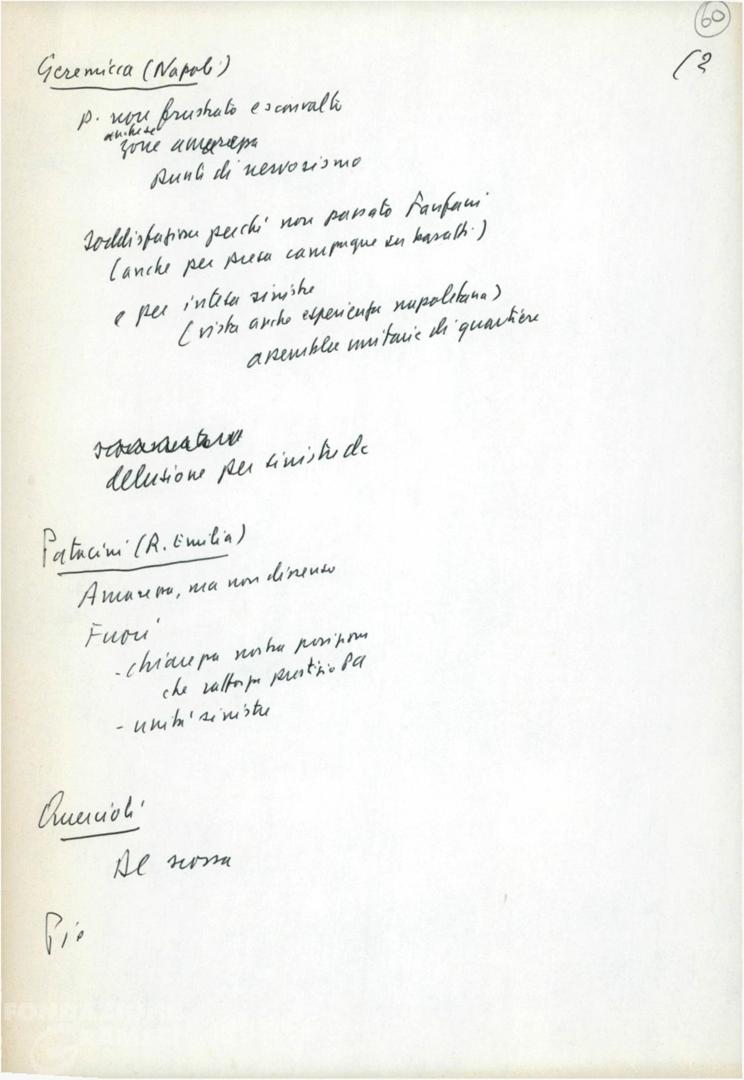 60
(2
Geremicca (Napoli)
p. non frustrato e sconvolto
anche se
zone amarezza
punti di nervosismo
soddisfazione perché non passato Fanfani
(anche per presa campagne su
e per intesa sinistre
(vista anche esperienza napoletana)
assemblee unitarie di quartiere
delusione per sinistre dc
Patacini (R. Emilia)
Amarezza, ma non dissenso
Fuori
- chiarezza nostra posizione
che rafforza prestizio Pci
- unità sinistre
Quercioli
scossa
Pio
FONDAZIONE
GRAMSCI